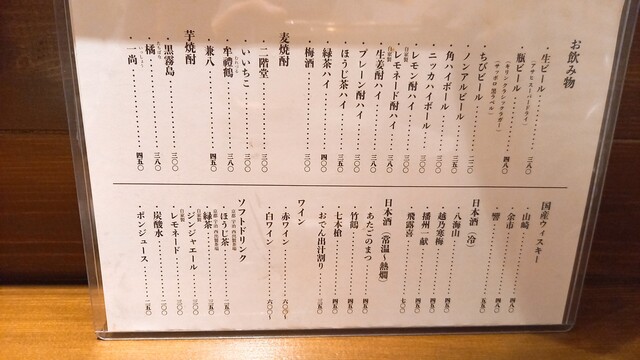 お飲み物
生ビール 三八〇
（アサヒスーパードライ）
瓶ビール 四八〇
（キリンクラシックラガー）
（サッポロ黒ラベル）
ちびビール 三〇〇
ノンアルビール 三二〇
角ハイボール 三五〇
ニッカハイボール 三〇〇
自家製 レモン酎ハイ 三〇〇
自家製 レモネード酎ハイ 三八〇
生姜酎ハイ 三八〇
プレーン酎ハイ 三〇〇
ほうじ茶ハイ 三五〇
緑茶ハイ 四〇〇
梅酒 三〇〇
麦焼酎
二階堂 三〇〇
いいちこ 三〇〇
牟禮鶴 三八〇
兼八 四五〇
芋焼酎
黒霧島 三〇〇
橘 三八〇
一尚 四五〇
国産ウィスキー
山崎 四八〇
余市 四八〇
響
日本酒（冷）
八海山 五五〇
越乃寒梅 四五〇
播州一献 四五〇
飛露喜 七〇〇
日本酒（常温〜熱燗）
あたごのまつ 四五〇
竹鶴 四五〇
七本槍 四五〇
おでん出汁割り 三五〇
ワイン
赤ワイン 六〇〇〜
白ワイン 六〇〇〜
ソフトドリンク
ほうじ茶 二五〇
緑茶 三五〇
自家製 ジンジャエール 三〇〇
自家製 レモネード 三〇〇
炭酸水 二〇〇
ポンジュース 二五〇